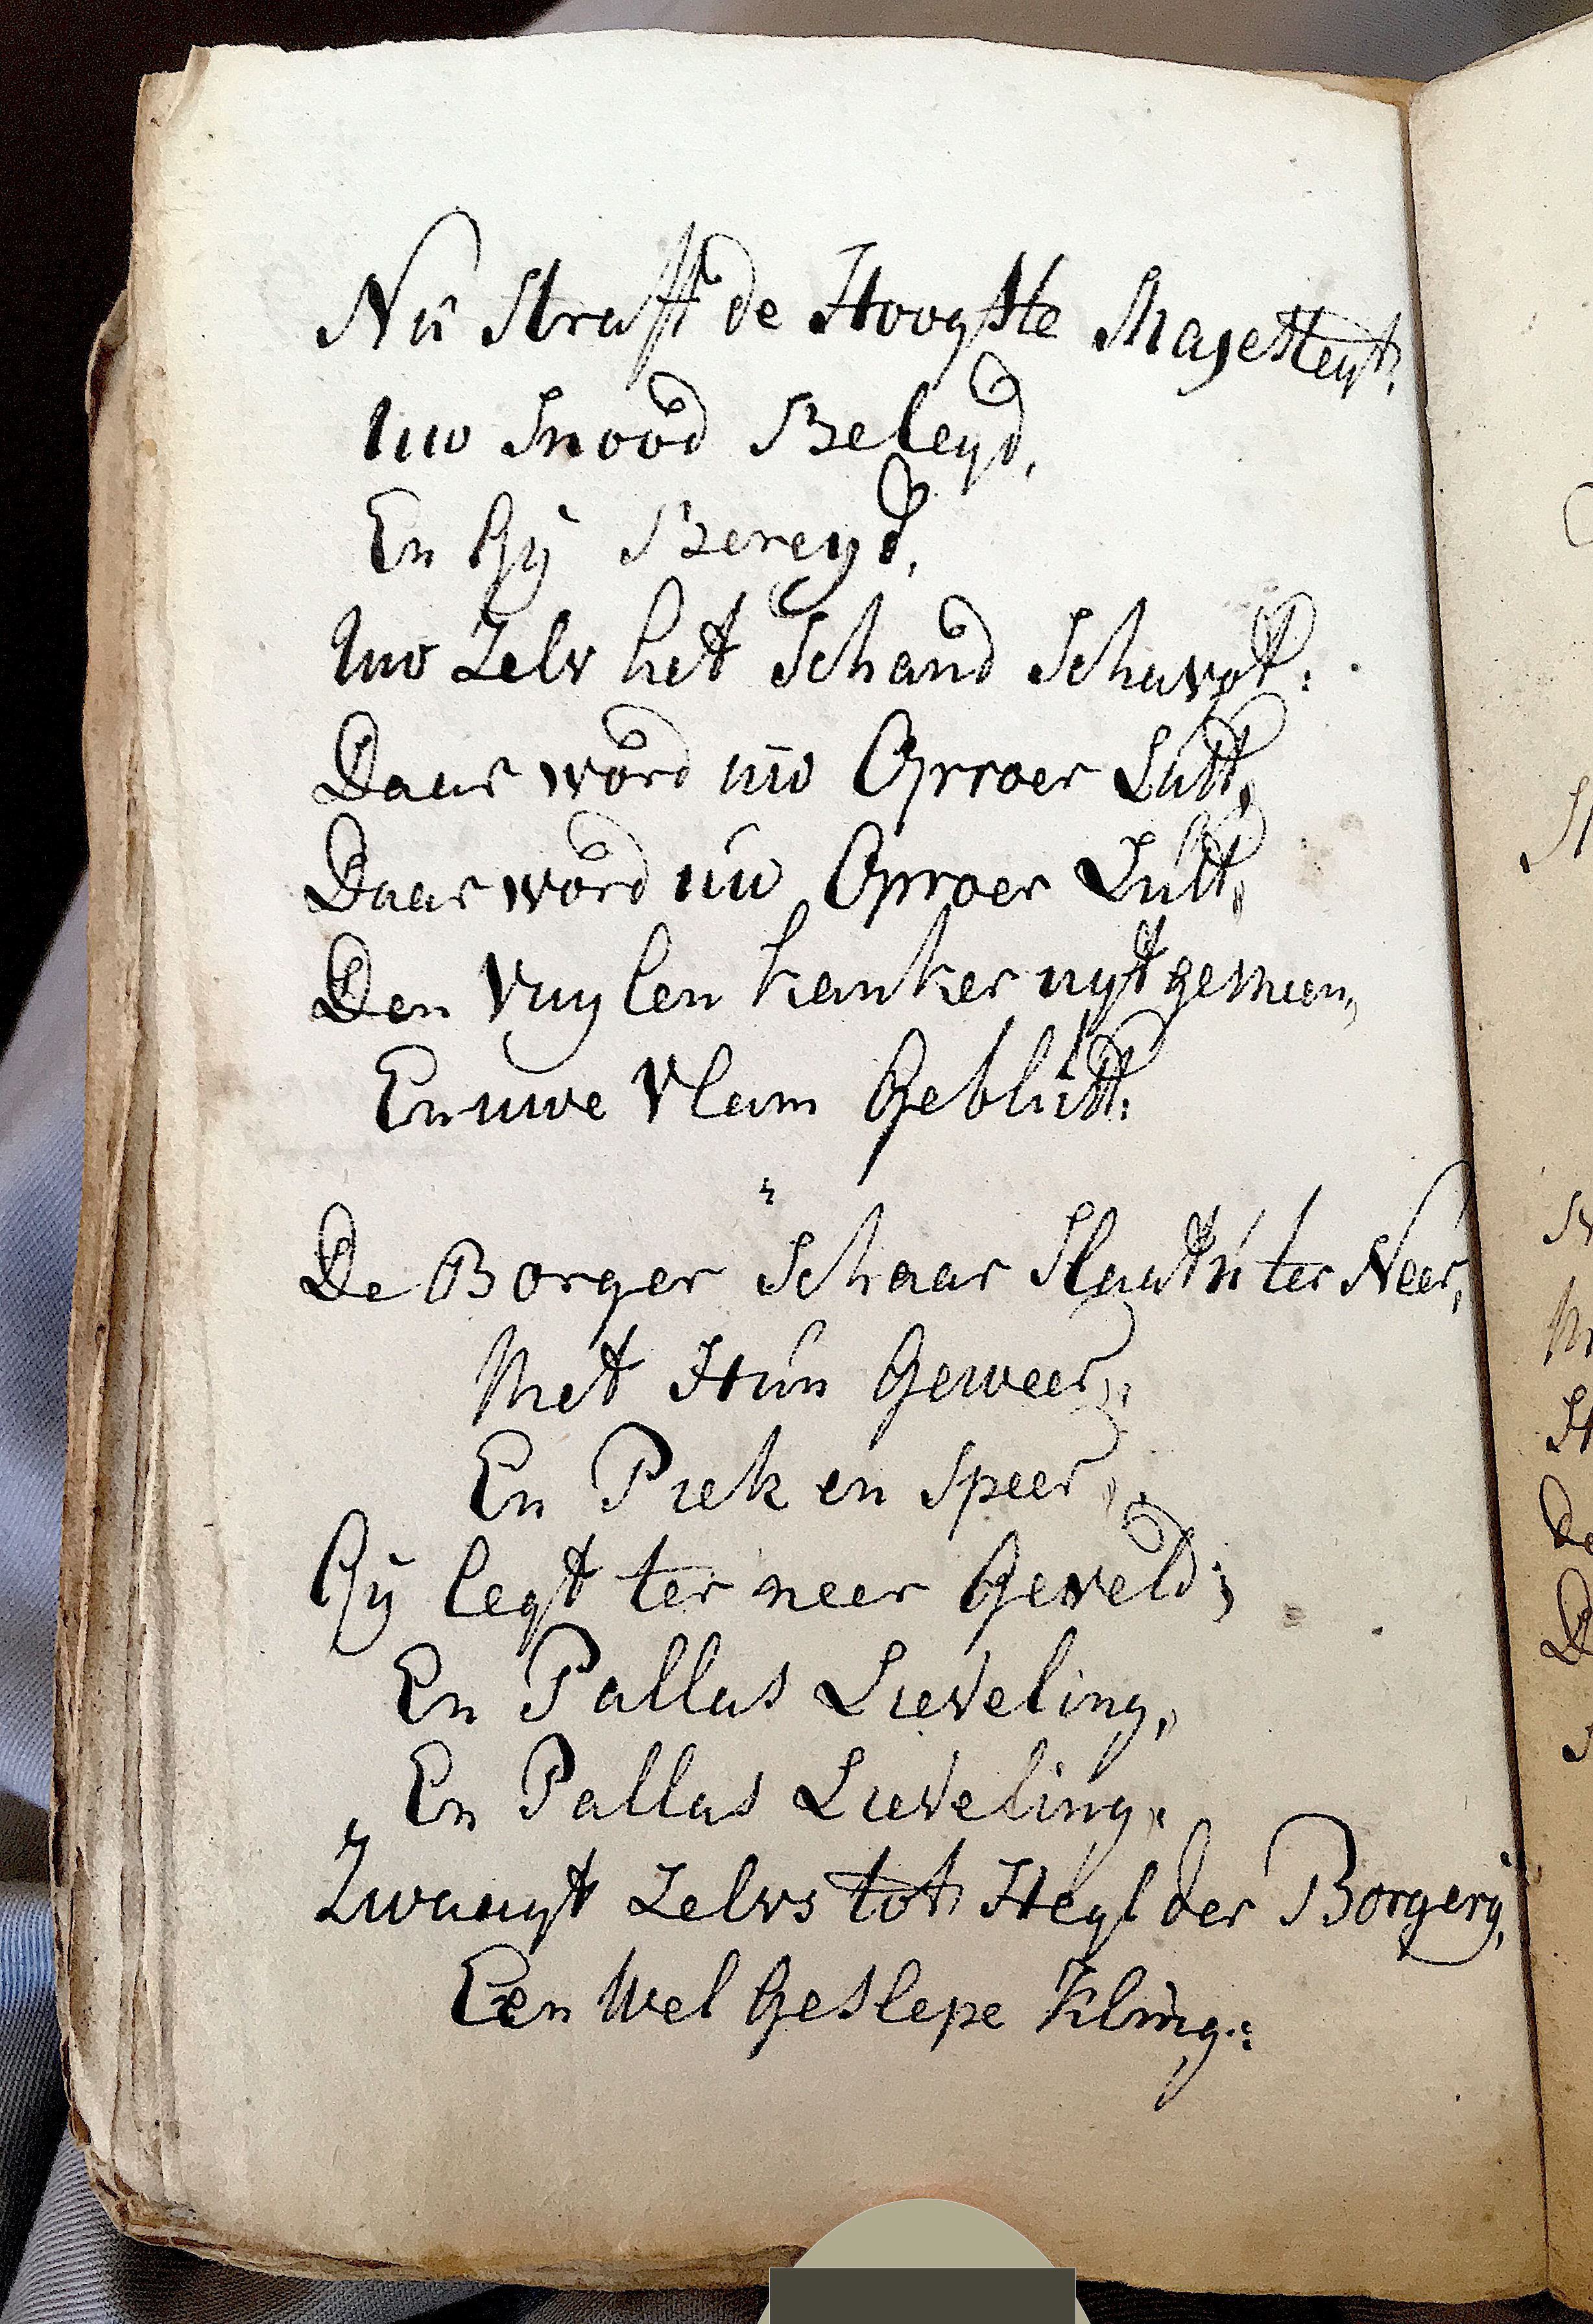 Nu Straft de Hoogste Majesteyt,
uw Snood Beleyd,
En Gij Bereyd,
uw Zelv het Schand Schavot:
Daar word uw Oproer Lutt,
Daar word uw Oproer Lutt,
Den Vuylen kanker uyt
En uwe Vlam Geblutt:
2
De Borger Schaar Slaat u ter Neer,
Met Hun Geweer,
En Piek en Speer,
Gij legt ter neer Geveld;
En Pallas Lieveling,
En Pallas Lieveling,
Zwaayt Zelvs tot Heyl der Borgery,
Een Wel Geslepe Kling: